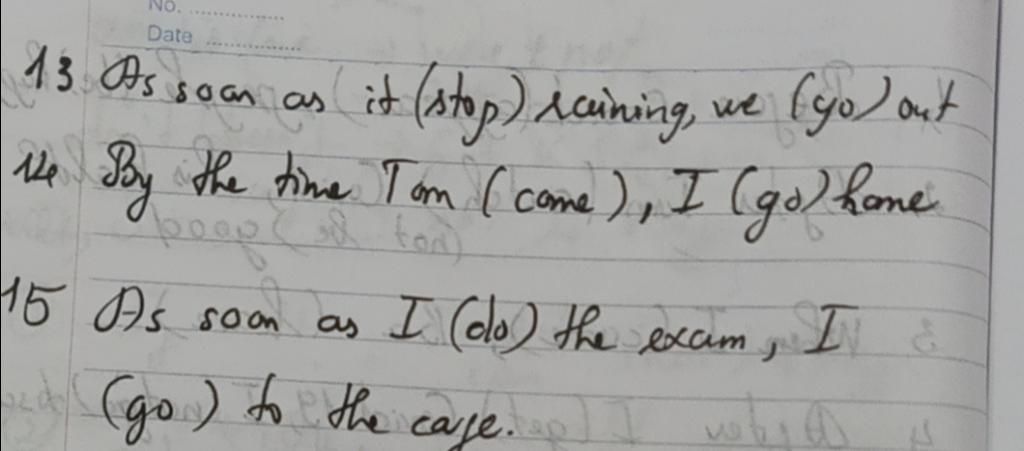 No. ..............
Date ..............
13 As soon as it (stop) raining, we (go) out
14 By the time Tom (come), I (go) home
15 As soon as I (do) the exam, I
(go) to the cafe.